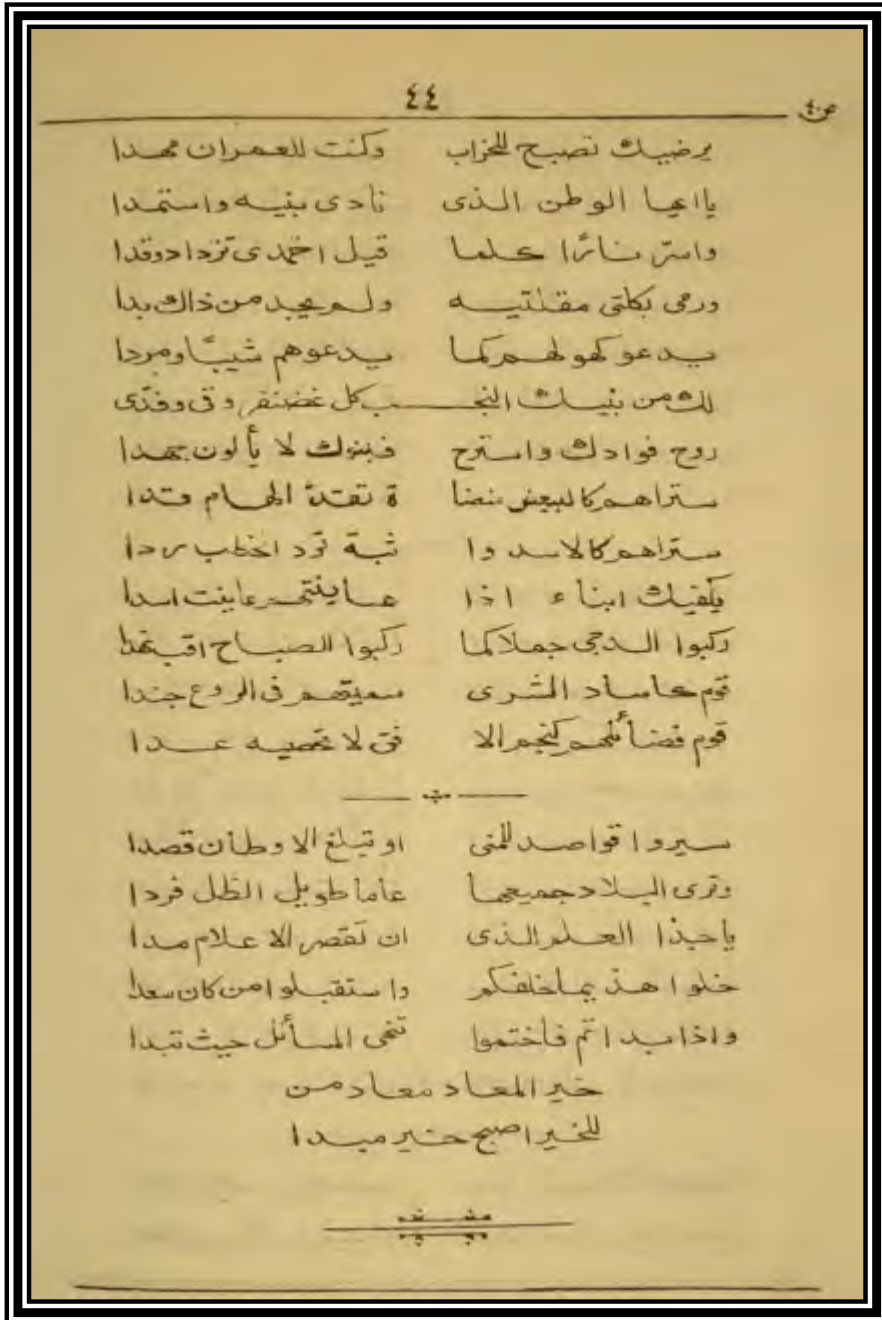 ٤٤
ص٤٠
يرضيك تصبح للخراب وكنت للعمران مهدا
يا ايها الوطن الذى نادى بنيه واستمدا
واسرّ نارًا كلما قيل اخمدى تزداد وقدا
ورمى بكلتى مقلتيه ولم يجد من ذاك بدا
يدعو كهولهم كما يدعوهم شيبًا ومردا
لك من بنيك النجب كل غضنفر وقى وفدّى
روح فوادك واسترح فبنوك لا يألون جهدا
ستراهم كالبيض منضاة تقدّ الهام قدا
ستراهم كالاسد واثبة تردّ الخطب ردا
يكفيك ابناء اذا عاينتهم عاينت اسدا
ركبوا الدجى جملا كما ركبوا الصباح اقب نهدا
قوم كاساد الشرى سميتهم فى الروع جندا
قوم فضائلهم كنجم الافق لا تحصيه عدا
سيروا قواصد للمنى او تبلغ الاوطان قصدا
وترى البلاد جميعها عاما طويل الظل فردا
ياحبذا العلم الذى ان تقصر الاعلام مدا
خلوا هذيما خلفكم واستقبلوا من كان سعدا
واذا بداتم فاختموا تنهى المسائل حيث تبدا
خير المعاد معاد من
للخير اصبح خير مبدا